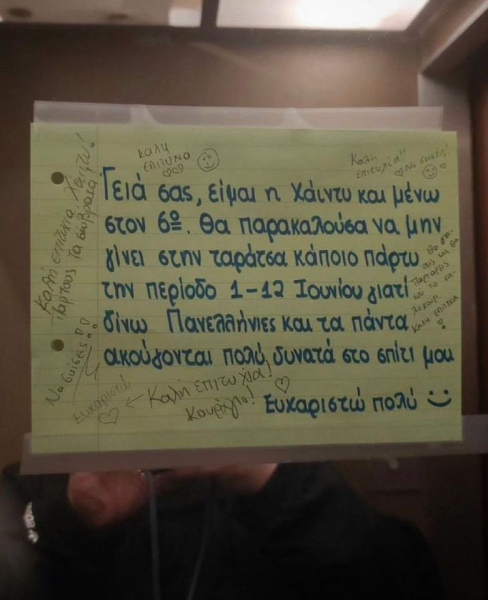 Καλή
επιτυχία
Καλή
επιτυχία!!
Γειά σας, είμαι η Χάιντυ και μένω
στον 6º. Θα παρακαλούσα να μην
γίνει στην ταράτσα κάποιο πάρτυ
την περίοδο 1-12 Ιουνίου γιατί
δίνω Πανελλήνιες και τα πάντα
ακούγονται πολύ δυνατά στο σπίτι μου
Ευχαριστώ πολύ
Καλή επιτυχία!
Κουράγιο!
Ευχαριστώ
Καλή επιτυχία Χάιντυ!
Καλή επιτυχία